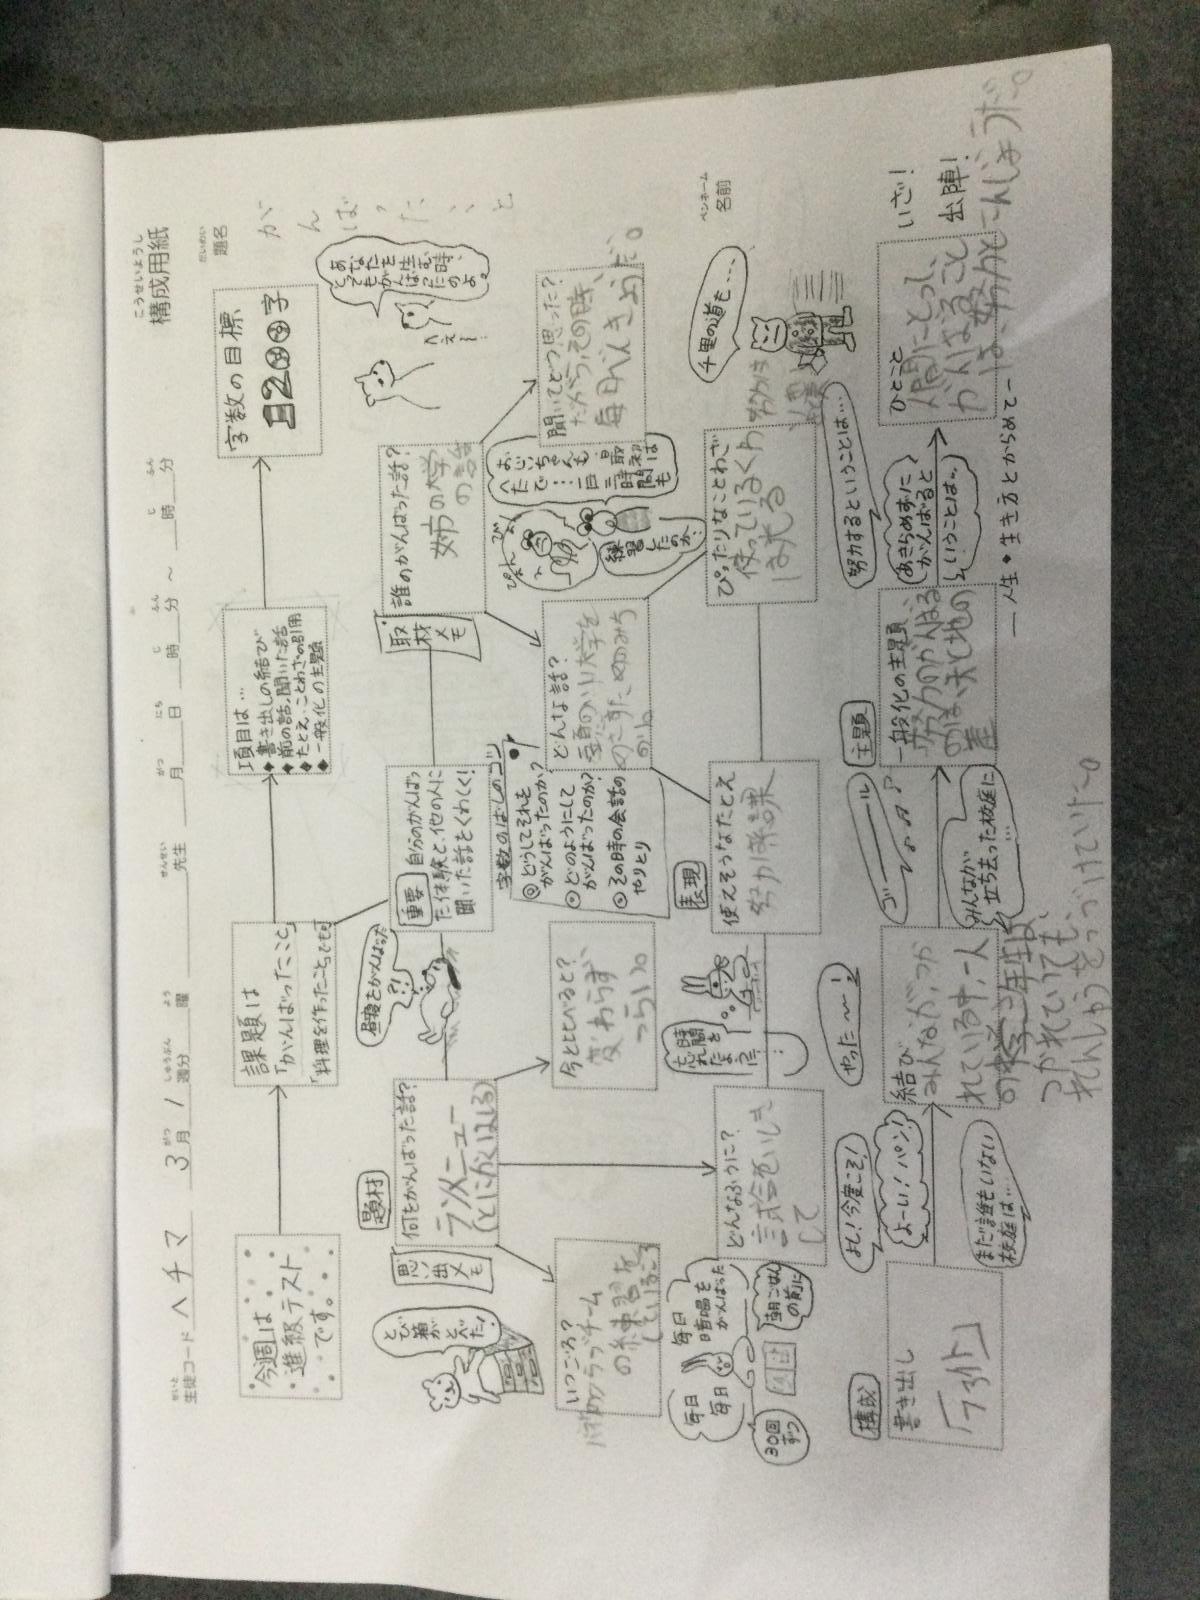 構成用紙
こうせいようし
生徒コード ハチマ 3月1週分 曜 先生 月 日 時 分 ～ 時 分
題名 がんばったこと
今週は
進級テスト
です。
課題は
「がんばったこと」
「料理を作ったこと」でも可
項目は…
◆書き出しの結び
◆前の話、聞いた話
◆たとえ、ことわざの引用
◆一般化の主題
字数の目標
1200字
思い出メモ
題材
何をがんばった話?
ランメニュー
(とにかくはしる)
とび箱が
とべた!
昼寝をがんばった
?!
重要
自分のがんばっ
た体験と、他の人に
聞いた話をくわしく!
取材メモ
誰のがんばった話?
姉の大学
の話
あなたを生む時、
とってもがんばった
のよ。
へぇー!
いつごろ?
の練習を
しているころ
今とくらべると?
変わらず
つらい。
字数のばしのコツ
◎どうしてそれを
がんばったのか?
◎どのようにして
がんばったのか?
◎その時の会話の
やりとり
どんな話?
聞いてどう思った?
だから、その時、
毎日べんきょうだ。
おじいちゃんも最初は
へたで…一日三時間も
練習したのか…
毎日
毎日
毎日
暗唱を
がんばった
30回
ずつ
朝ごはん
の前に
どんなふうに?
試合をいしき
して
時間を
忘れ
だよ
表現
使えそうなたとえ
努力
ぴったりなことわざ
使っているくわ
は光る
千里の道も…
ペンネーム
名前
構成
書き出し
「ファイト」
よし!今度こそ!
よーい!パン!
まだ誰もいない
校庭は…
結び
みんなが、つか
れている中、一人
の
つかれていても、
れんしゅうをつづけていた〜。
やった〜!
ゴール
みんなが
立ち去った校庭に
…
主題
一般化の主題
努力のがんばる
のは、天と地の
差
努力するということは…
あきらめずに
がんばると
いうことは…
ひとこと
人間にとって、
がんばること
は、努力とこんじょうだ〜。
いざ!
出陣!
― 人生・生き方とからめて ―